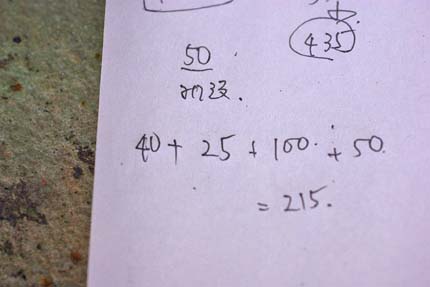 435
50
40 + 25 + 100 + 50
= 215.